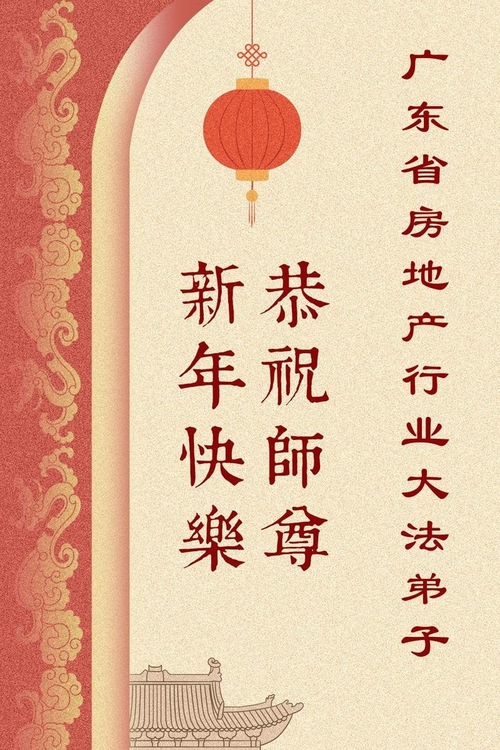 广东省房地产行业大法弟子
恭祝師尊
新年快樂